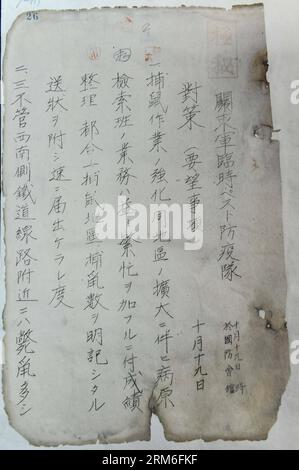 26
極秘
關東軍臨時ペスト防疫隊
十月十九日
於國防會館
對策(要望事項)
十月十九日
一、捕鼠作業ノ強化同地區ノ擴大ニ伴ヒ病原
檢索班ノ業務ハ益々繁忙ヲ加フルニ付成績
整理ノ都合上捕鼠地區、捕鼠數ヲ明記シタル
送狀ヲ附シ速ニ届出ケラレ度
二、三不管西南側鐵道線路附近ニハ斃鼠多シ
alamy
Image ID: 2RM6FKF
www.alamy.com